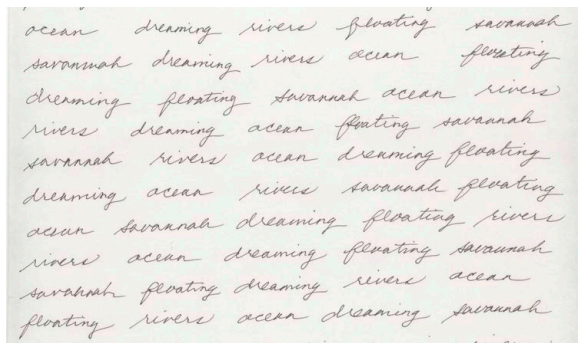 ocean dreaming rivers floating savannah
savannah dreaming rivers ocean floating
dreaming floating savannah ocean rivers
rivers dreaming ocean floating savannah
savannah rivers ocean dreaming floating
dreaming ocean rivers savannah floating
ocean savannah dreaming floating rivers
rivers ocean dreaming floating savannah
savannah floating dreaming rivers ocean
floating rivers ocean dreaming savannah